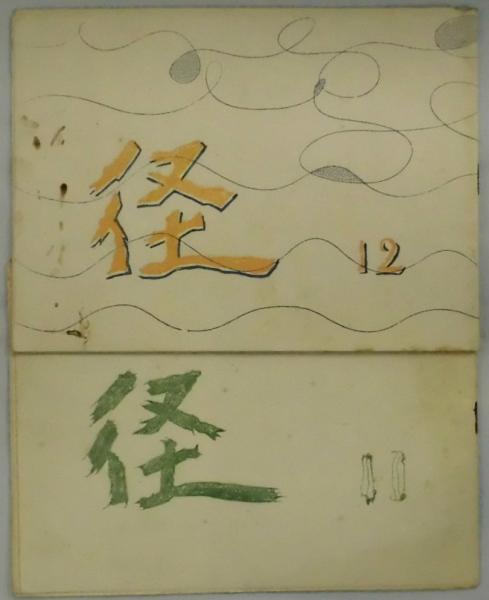 径
12
径
11